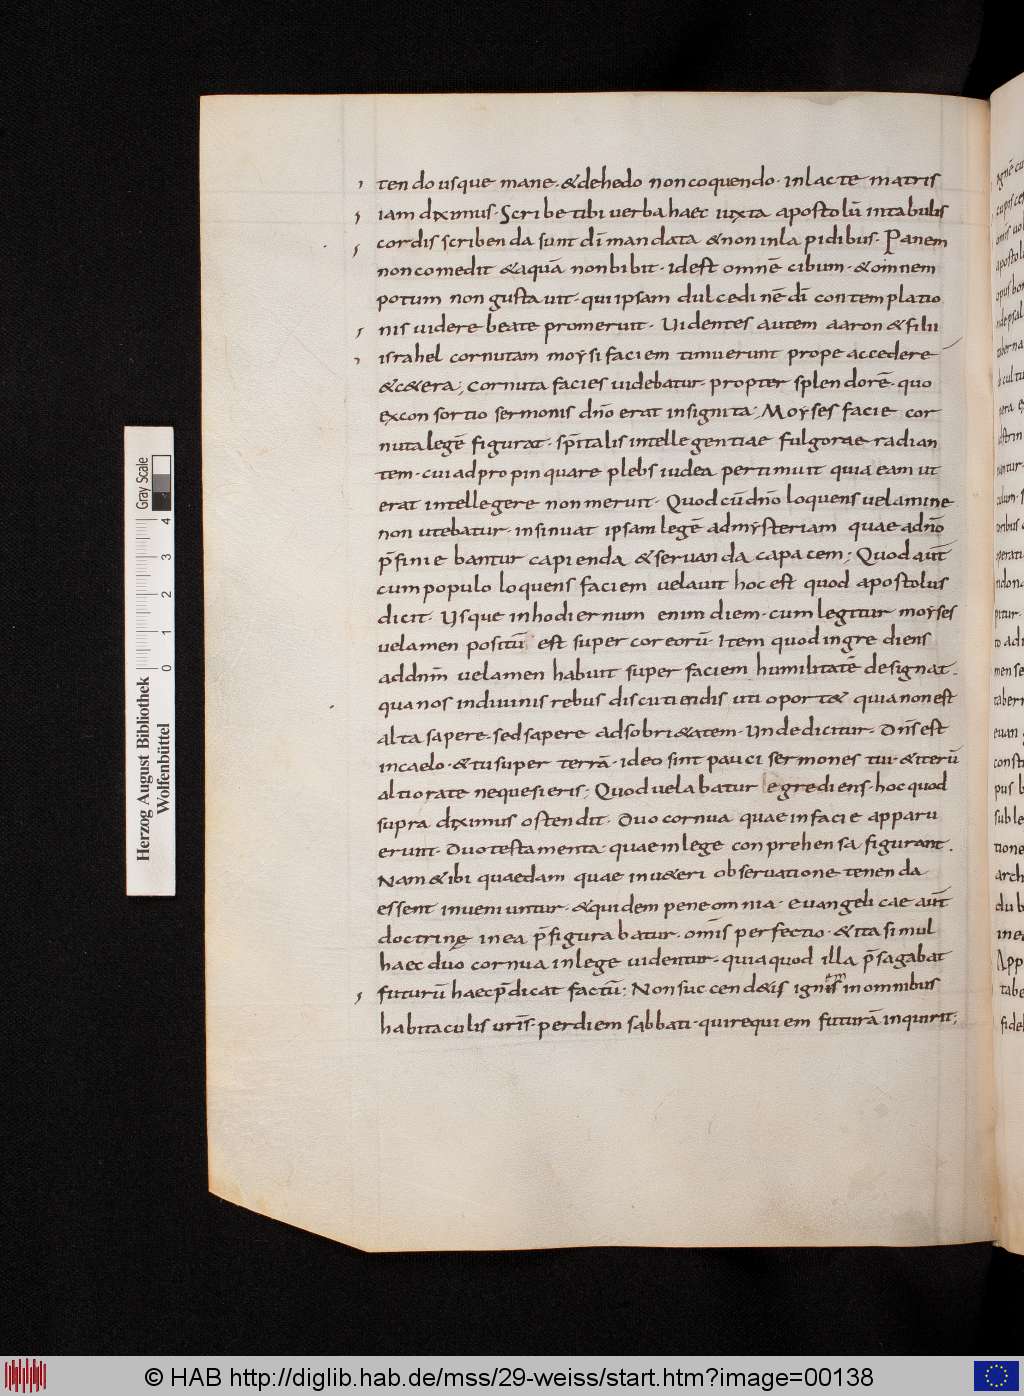 ten do usque mane · & de hedo non coquendo · in lacte matris
iam diximus · Scribe tibi uerba haec iuxta apostolū in tabulis
cordis scribenda sunt dī mandata & non in lapidibus · Panem
non comedit & aquā non bibit · id est omnē cibum · & omnem
potum non gustauit · qui ipsam dulcedinē dī contemplatio
nis uidere beate promeruit · Uidentes autem aaron & filii
israhel cornutam moysi faciem timuerunt prope accedere
& c&era; Cornuta facies uidebatur · propter splendorē · quo
ex consortio sermonis dn̄o erat insignita; Moyses facie cor
nuta legē figurat · sp̄italis intellegentiae fulgorae radian
tem · cui adpropinquare plebs iudea pertimuit quia eam ut
erat intellegere non meruit · Quod cū dn̄o loquens uelamine
non utebatur · insinuat ipsam legē ad mysteriam quae ad n̄o
p̄finiebantur capienda & seruanda capacem; Quod aut̄
cum populo loquens faciem uelauit hoc est quod apostolus
dicit · Usque in hodiernum enim diem · cum legitur moyses
uelamen positū est super cor eorū · Item quod ingrediens
ad dn̄m uelamen habuit super faciem humilitatē designat ·
qua nos in diuinis rebus discutiendis uti oport& quia non est
alta sapere · sed sapere ad sobri&atem · Unde dicitur · Dn̄s est
in caelo · & tu super terrā · ideo sint pauci sermones tui · & iterū
altiora te ne quesieris; Quod uelabatur egrediens · hoc quod
supra diximus ostendit · Duo cornua quae in facie apparu
erunt · Duo testamenta · quae in lege conprehensa figurant ·
Nam & ibi quaedam quae in u&eri obseruatione tenenda
essent inueniuntur · & quidem pene omnia · euangelicae aut̄
doctrinę in ea p̄figurabatur · omīs perfectio · & ita simul
haec duo cornua in lege uidentur · quia quod illa p̄sagabat
futurū haec p̄dicat factū; Non succend&is ignis in omnibus
habitaculis urīs · per diem sabbati · qui requiem futurā inquirit;
Gray Scale
0 1 2 3 4
Herzog August Bibliothek
Wolfenbüttel
© HAB http://diglib.hab.de/mss/29-weiss/start.htm?image=00138